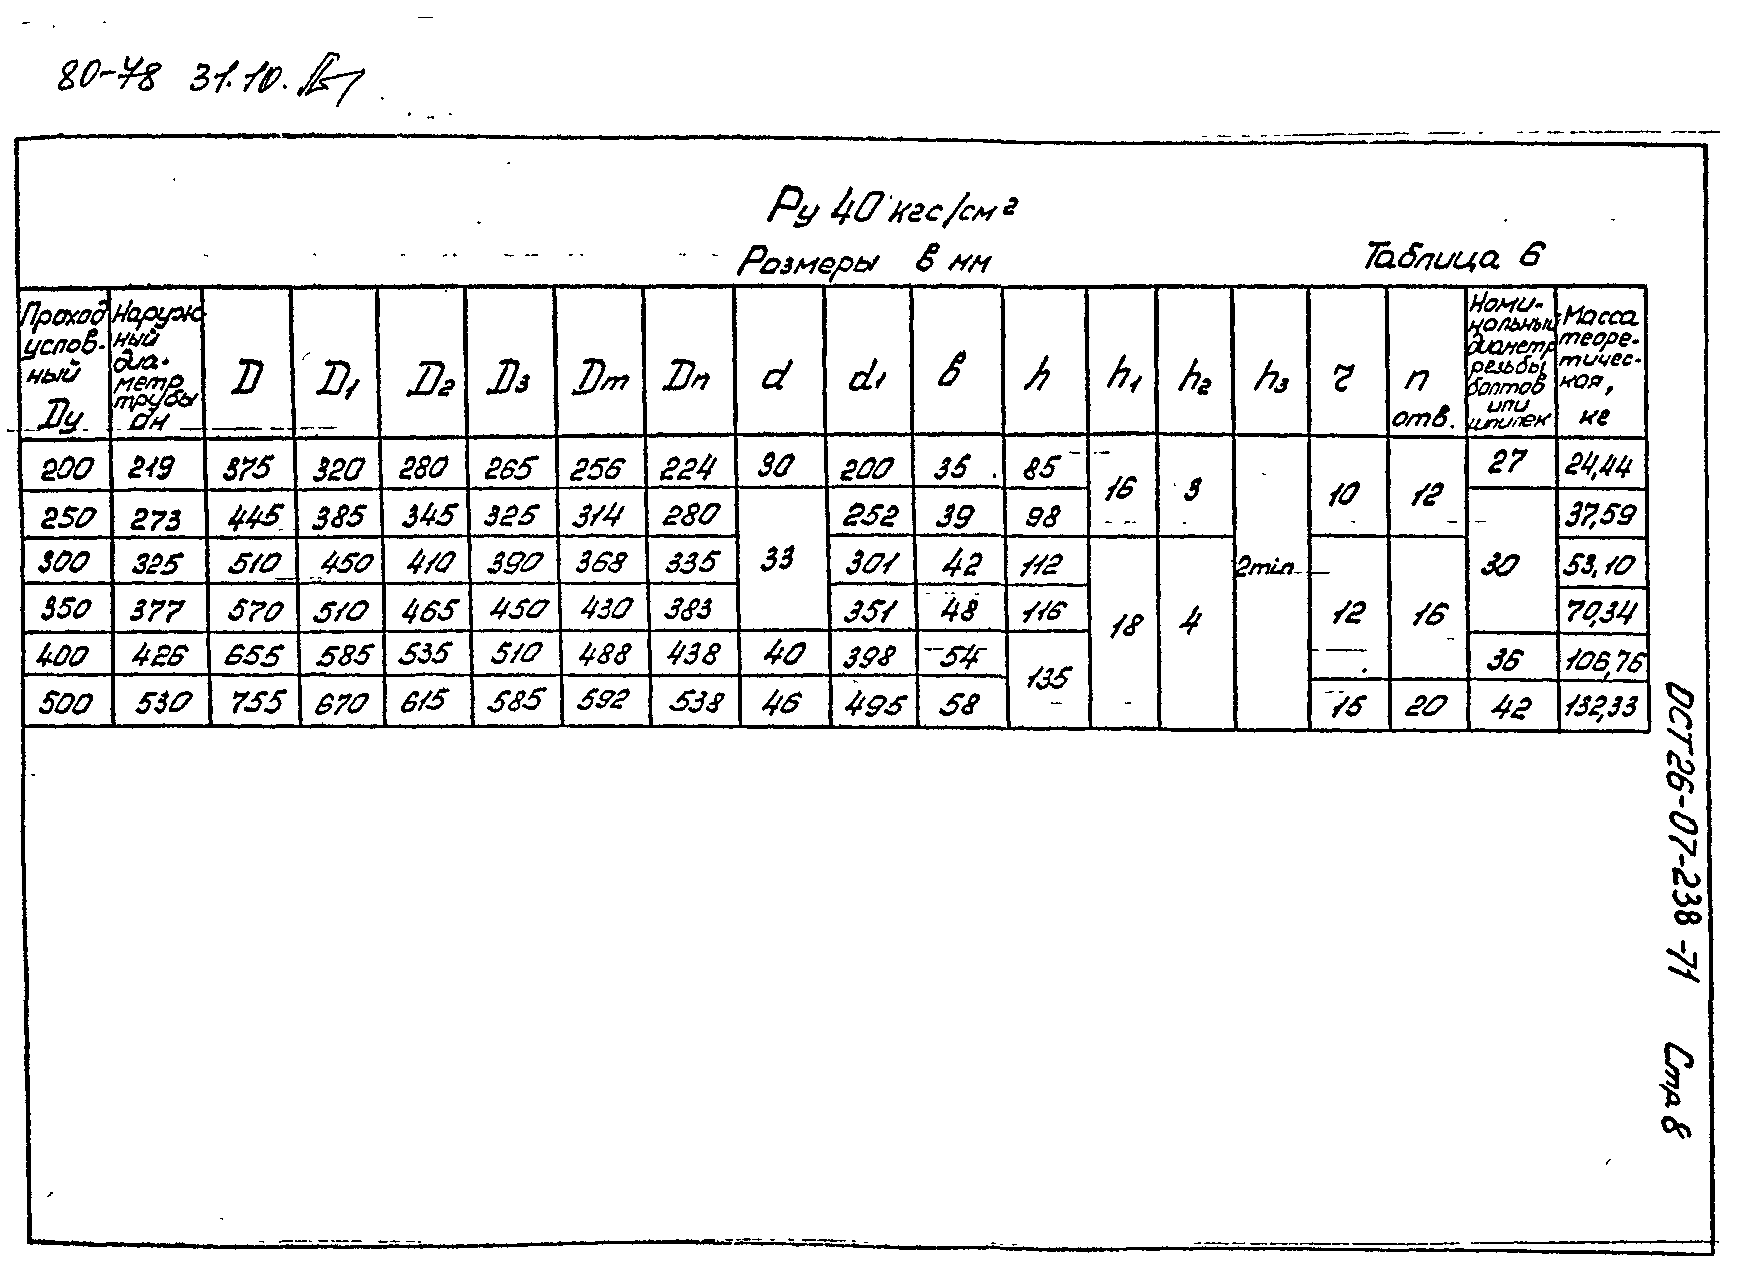 80-78 31.10.
Ру 40 кгс/см²
Размеры в мм Таблица 6
Проход условный Ду | Наружный диаметр трубы dн | D | D1 | D2 | D3 | Dm | Dп | d | d1 | в | h | h1 | h2 | h3 | r | n отв. | Номинальный диаметр резьбы болтов или шпилек | Масса теоретическая, кг
200 219 375 320 280 265 256 224 30 200 35 85 16 3 2min 10 12 27 24,44
250 273 445 385 345 325 314 280 33 252 39 98 30 37,59
300 325 510 450 410 390 368 335 301 42 112 18 4 12 16 53,10
350 377 570 510 465 450 430 383 351 48 116 70,34
400 426 655 585 535 510 488 438 40 398 54 135 36 106,76
500 530 755 670 615 585 592 538 46 495 58 15 20 42 132,33
ОСТ26-07-238-71 Стр 8